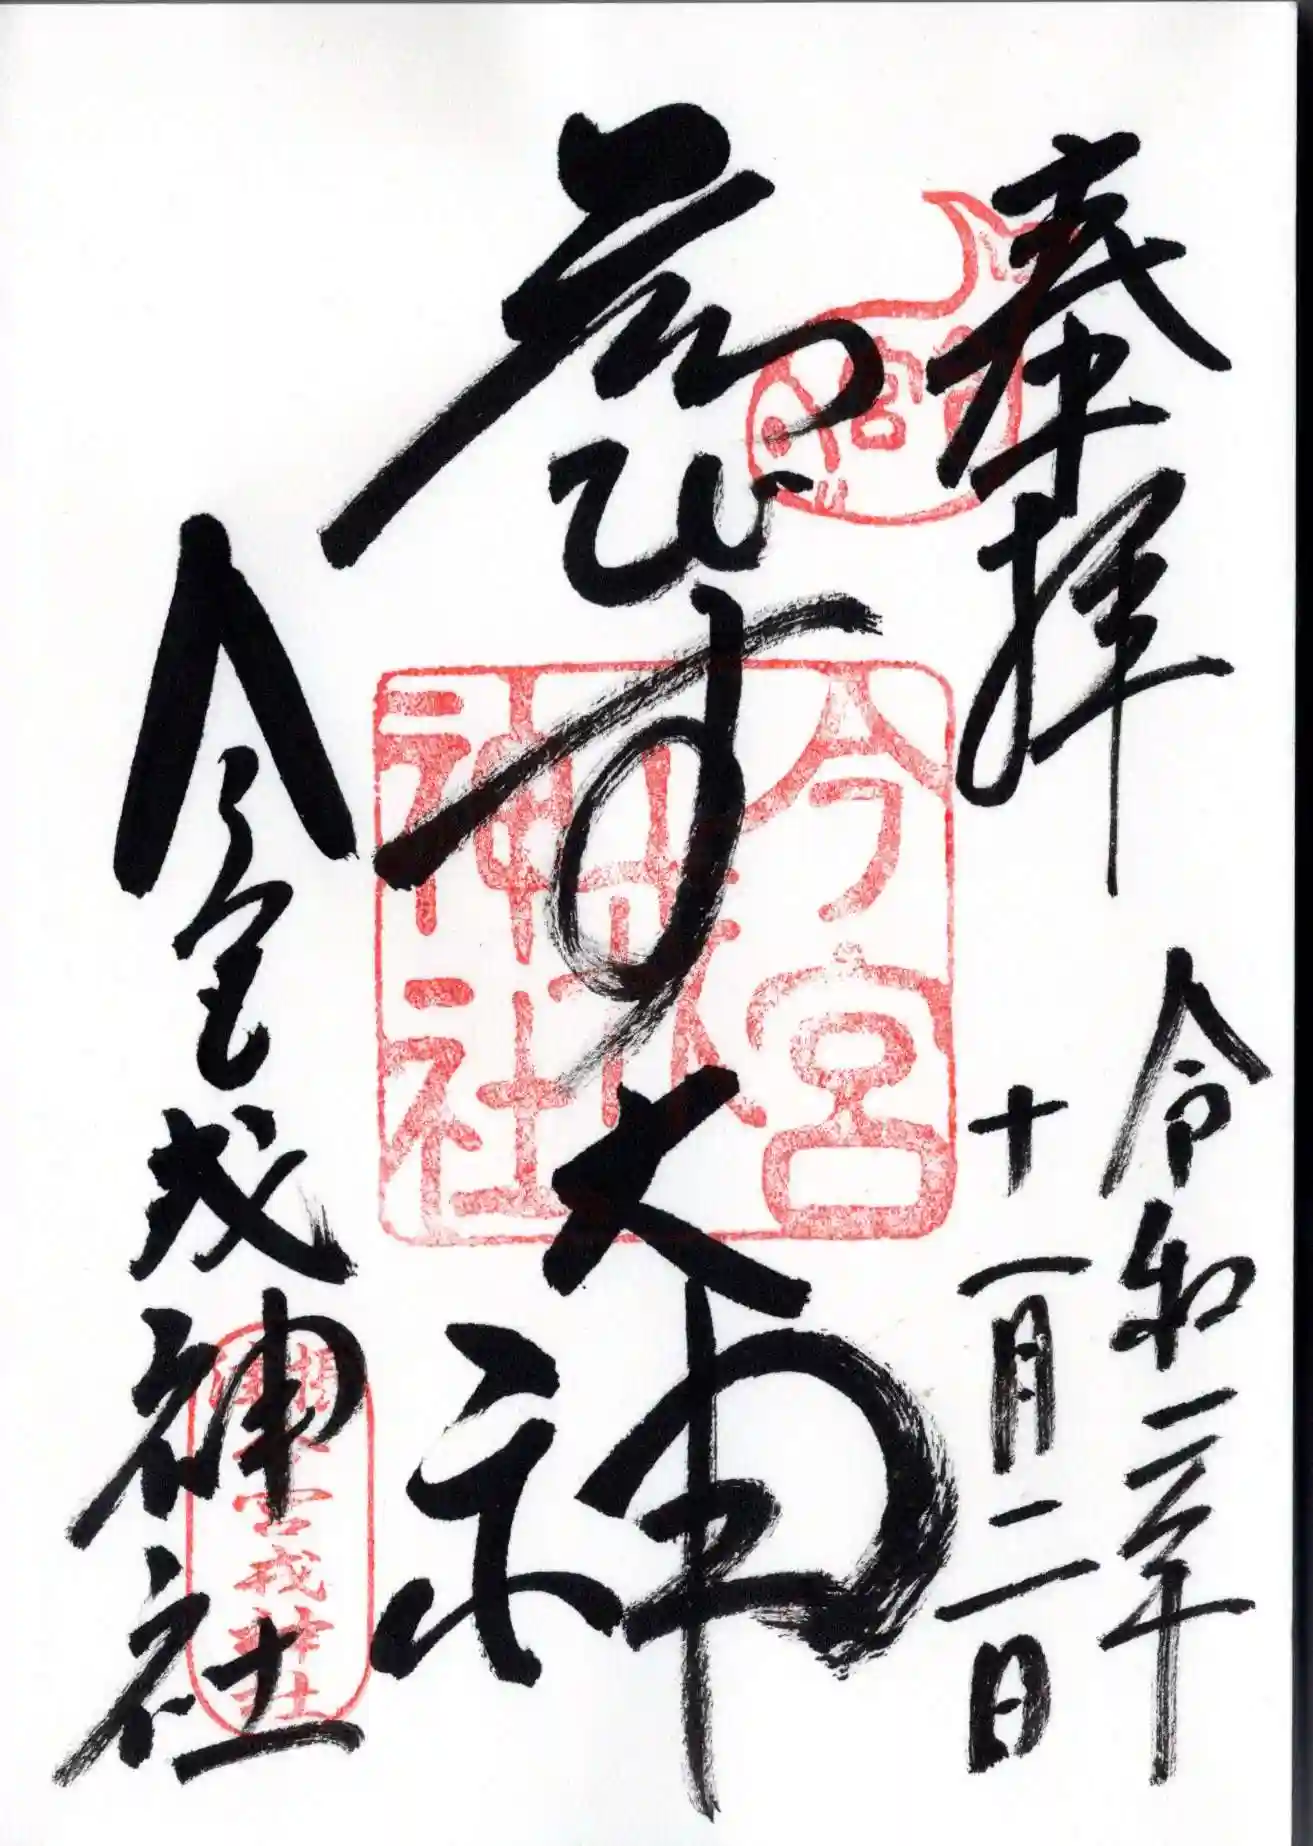 奉拝
令和二年
十一月二日
ゑびす大神
今宮戎神社
今宮
戎
神社